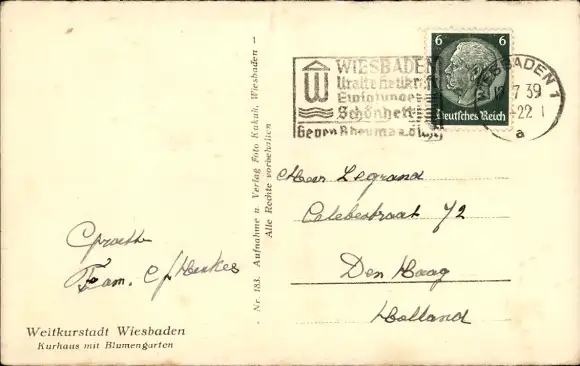 WIESBADEN
Uralte Heilkraft
Ewigjunge
Schönheit
Gegen Rheuma u. Gicht
6 6
Deutsches Reich
WIESBADEN 1
7 39
22
a
Legrand
Celebesstraat 72
Den Haag
Holland
Fam.
Nr. 183. Aufnahme u. Verlag Foto Kukuk, Wiesbaden -
Alle Rechte vorbehalten
Weltkurstadt Wiesbaden
Kurhaus mit Blumengarten